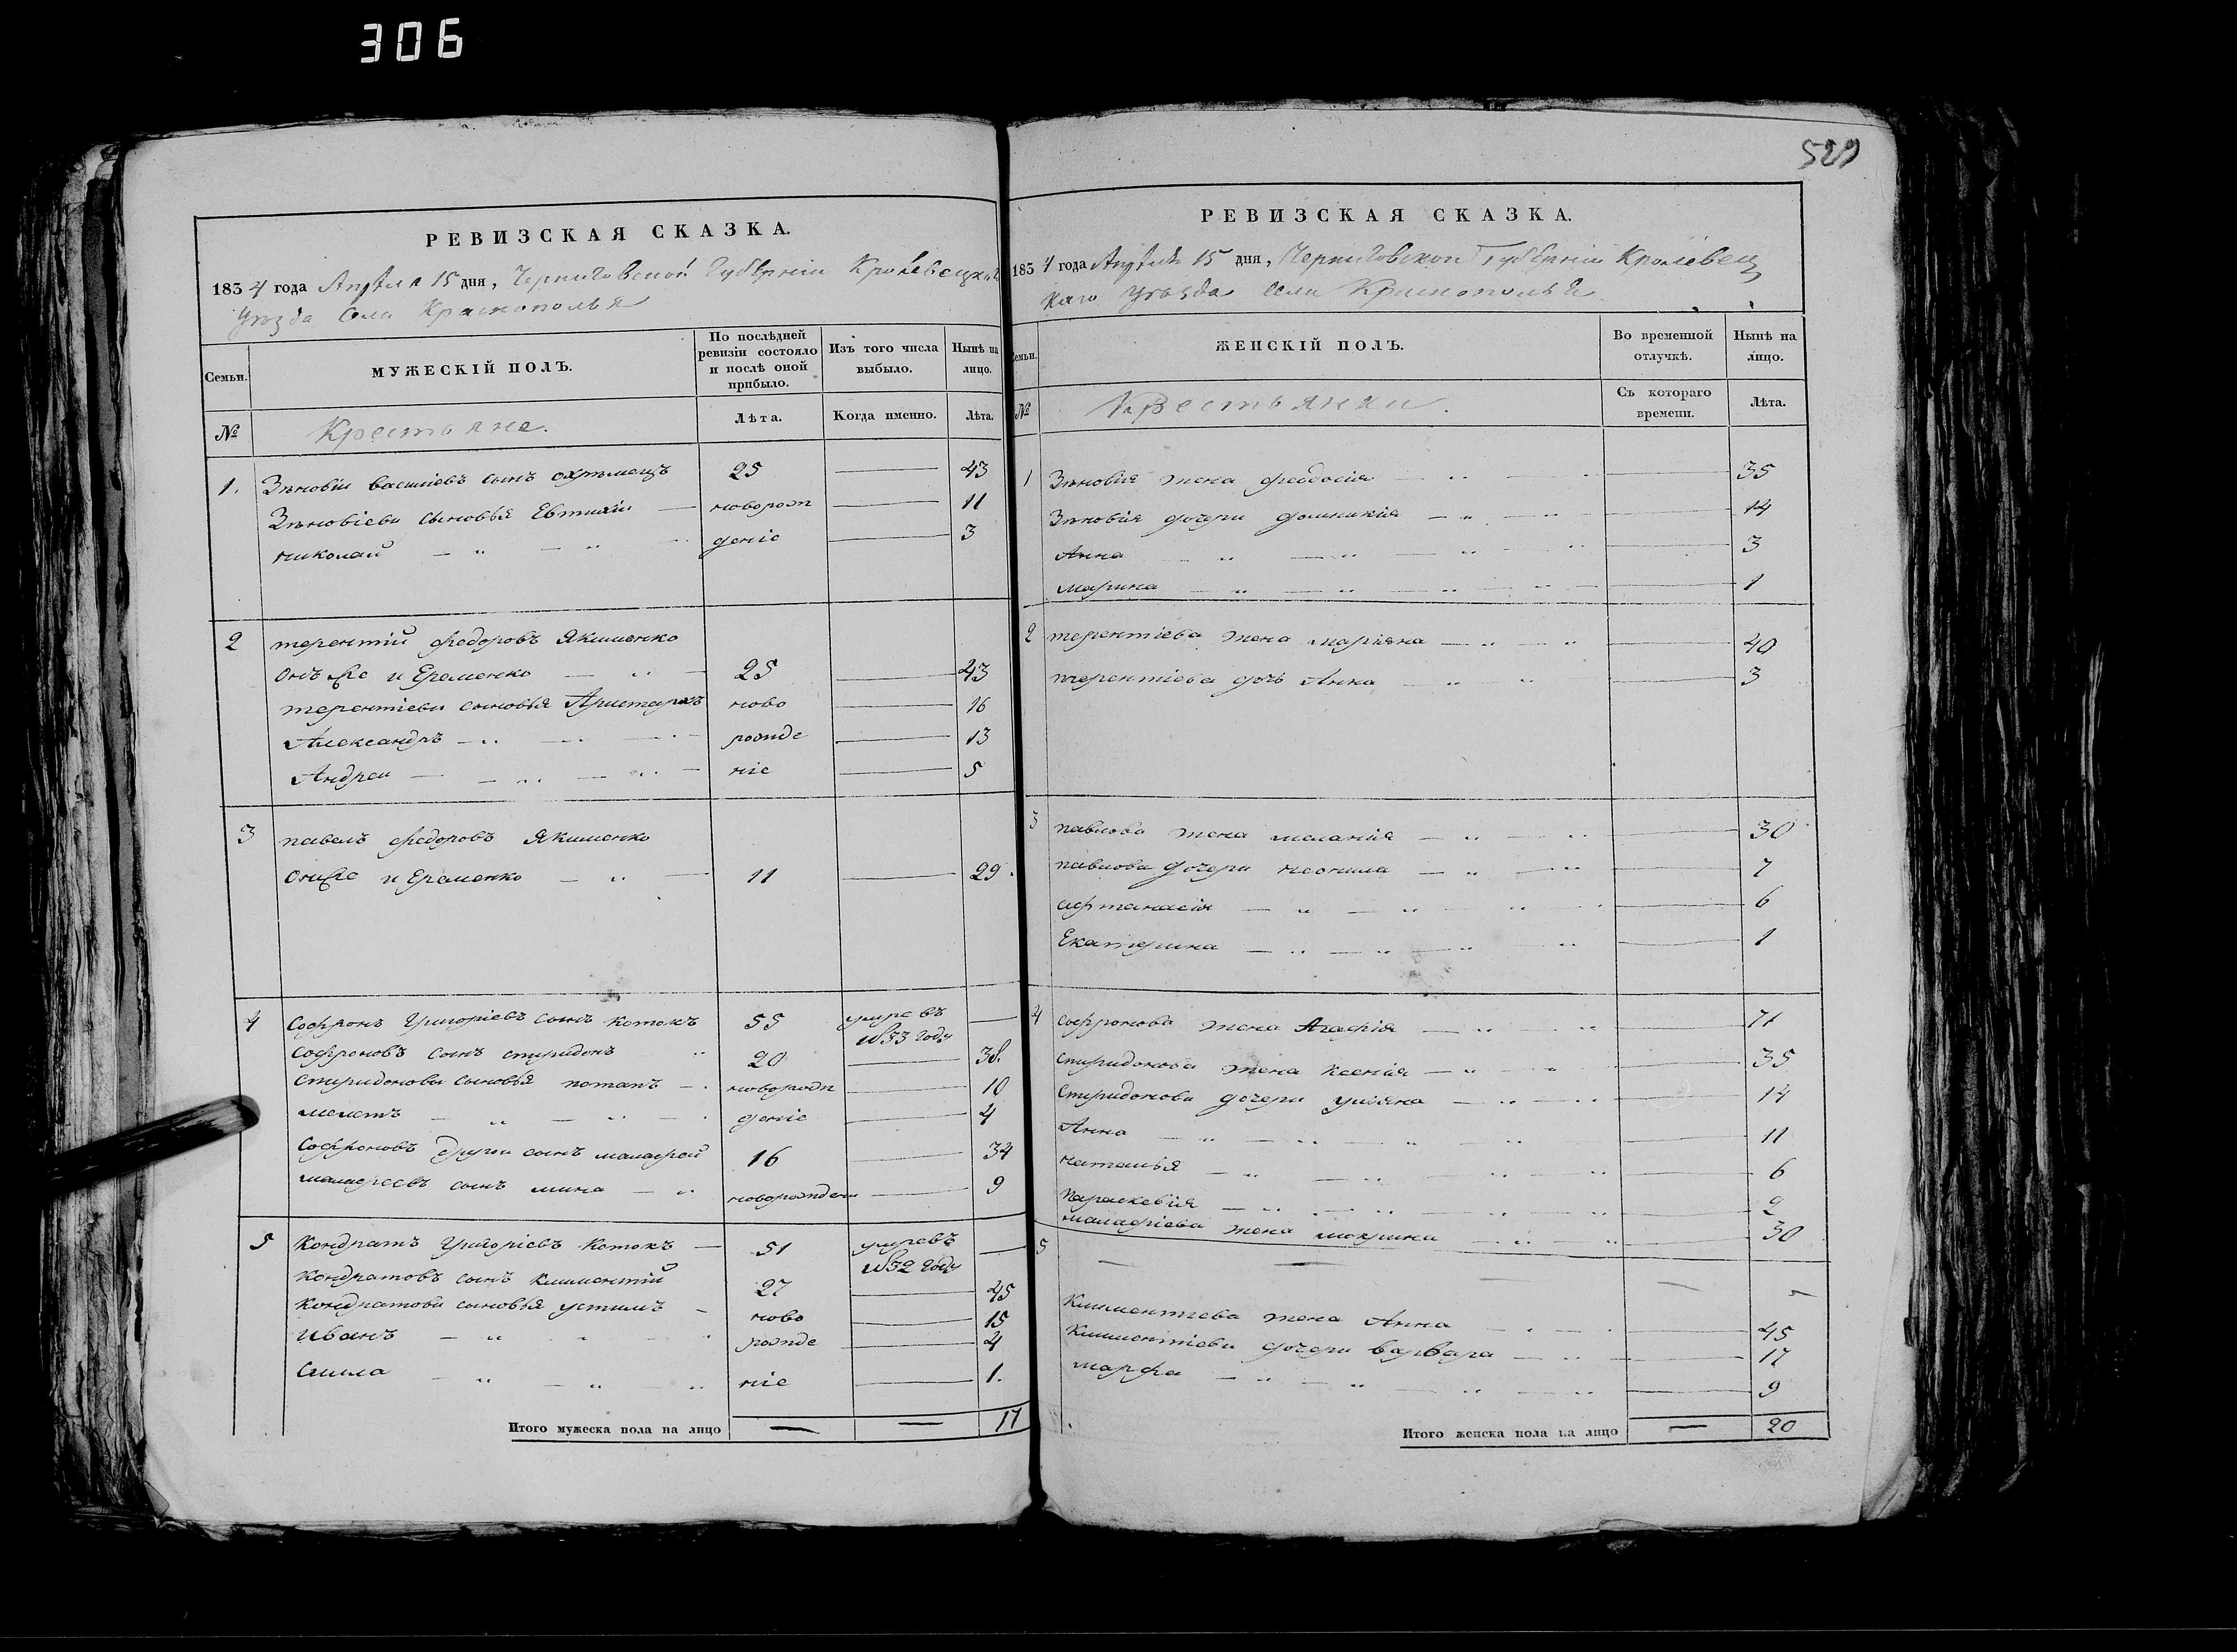 306
529
РЕВИЗСКАЯ СКАЗКА.
1834 года Апреля 15 дня, Черниговской Губерніи Кролевецкаго
Уезда Села Краснополья
Семьи.
МУЖЕСКІЙ ПОЛЪ.
По послѣдней ревизіи состояло и послѣ оной прибыло.
Изъ того числа выбыло.
Нынѣ на лицо.
№
Крестьяне.
Лѣта.
Когда именно.
Лѣта.
1. Зѣновіи василіевъ сынъ 25 43
Зѣновіеви сыновья Евтихіи новорож 11
николай деніе 3
2 терентій федоровъ Якименко
онъ же и Ероменко 25 43
терентіеви сыновья Аристархъ ново 16
Александръ рожде 13
Андреи ніе 5
3 павелъ федоровъ Якименко
онже и Ероменко 11 29.
4 Софронъ Григоріевъ сынъ котокъ 55 умре въ 1833 году
софроновъ сынъ спиридонъ 20 38.
спиридонови сыновья потапъ новорож 10
мелетъ деніе 4
софроновъ други сынъ малафей 16 34
малафеевъ сынъ мина новорожден 9
5 Кондратъ Григоріевъ Котокъ 51 умревъ 1832 году
кондратовъ сынъ климентій 27 45
кондратови сыновья устимъ ново 15
иванъ рожде 4
ніе 1.
Итого мужеска пола на лицо 17
РЕВИЗСКАЯ СКАЗКА.
1834 года Апреля 15 дня, Черниговскои Губерніи Кролевец
каго Уезда Села Краснополья.
Семьи.
ЖЕНСКІЙ ПОЛЪ.
Во временной отлучкѣ.
Нынѣ на лицо.
№
Крестьянки.
Съ котораго времени.
Лѣта.
1 Зѣновія жена феодосія 35
Зѣновія дочери домникія 14
Анна 3
марина 1
2 терентіева жена маріяна 40
терентіева дочь Анна 3
3 павлова жена меланія 30
павлови дочери неонила 7
6
Екатерина 1
4 софронова жена Агафія 71
спиридонова жена ксенія 35
спиридонови дочери уляна 14
Анна 11
наталья 6
параскевія 2
малафіева жена мокрина 30
5
климентіева жена Анна 45
климентіеви дочери варвара 17
марфа 9
Итого женска пола на лицо 20